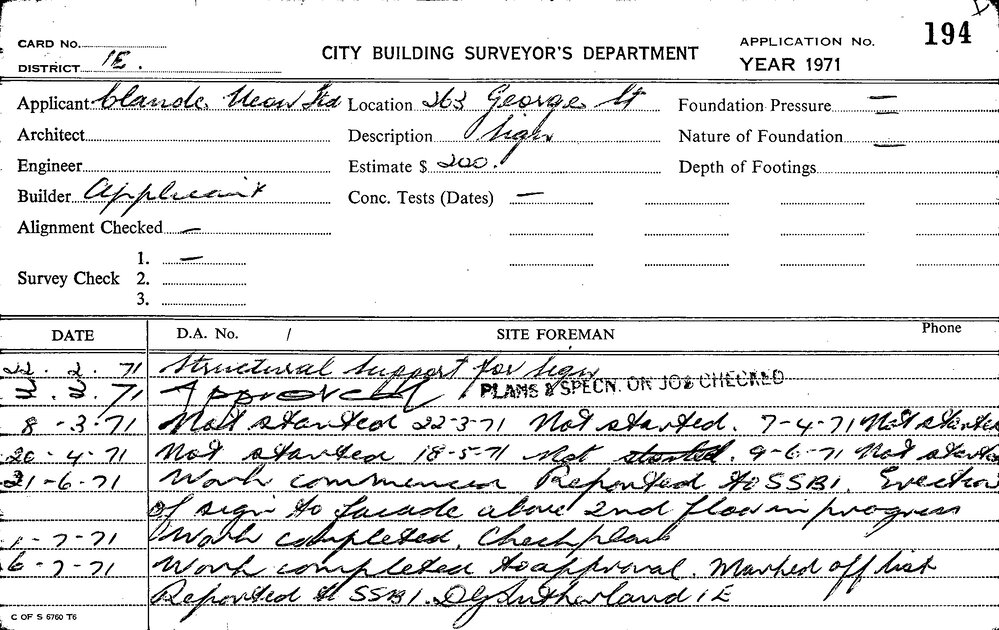 194
CARD No.
DISTRICT 1E.
CITY BUILDING SURVEYOR'S DEPARTMENT
APPLICATION No.
YEAR 1971
Applicant Claude Neon Ltd Location 263 George St Foundation Pressure —
Architect Description Sign Nature of Foundation —
Engineer Estimate $ 200. Depth of Footings
Builder Applicant Conc. Tests (Dates) —
Alignment Checked —
1. —
Survey Check 2.
3.
DATE D.A. No. / SITE FOREMAN Phone
22.2.71 Structural support for sign
3.3.71 Approved PLANS & SPECN. ON JOB CHECKED
8-3-71 Not started 22-3-71 Not started. 7-4-71 Not started
20-4-71 Not started 18-5-71 Not started. 9-6-71 Not started
21-6-71 Work commenced Reported to SSB1. Erection
of sign to facade above 2nd floor in progress
1-7-71 Work completed. Check plans
6-7-71 Work completed to approval. Marked off list
Reported to SSB1. DG Sutherland 1E
C OF S 6760 T6